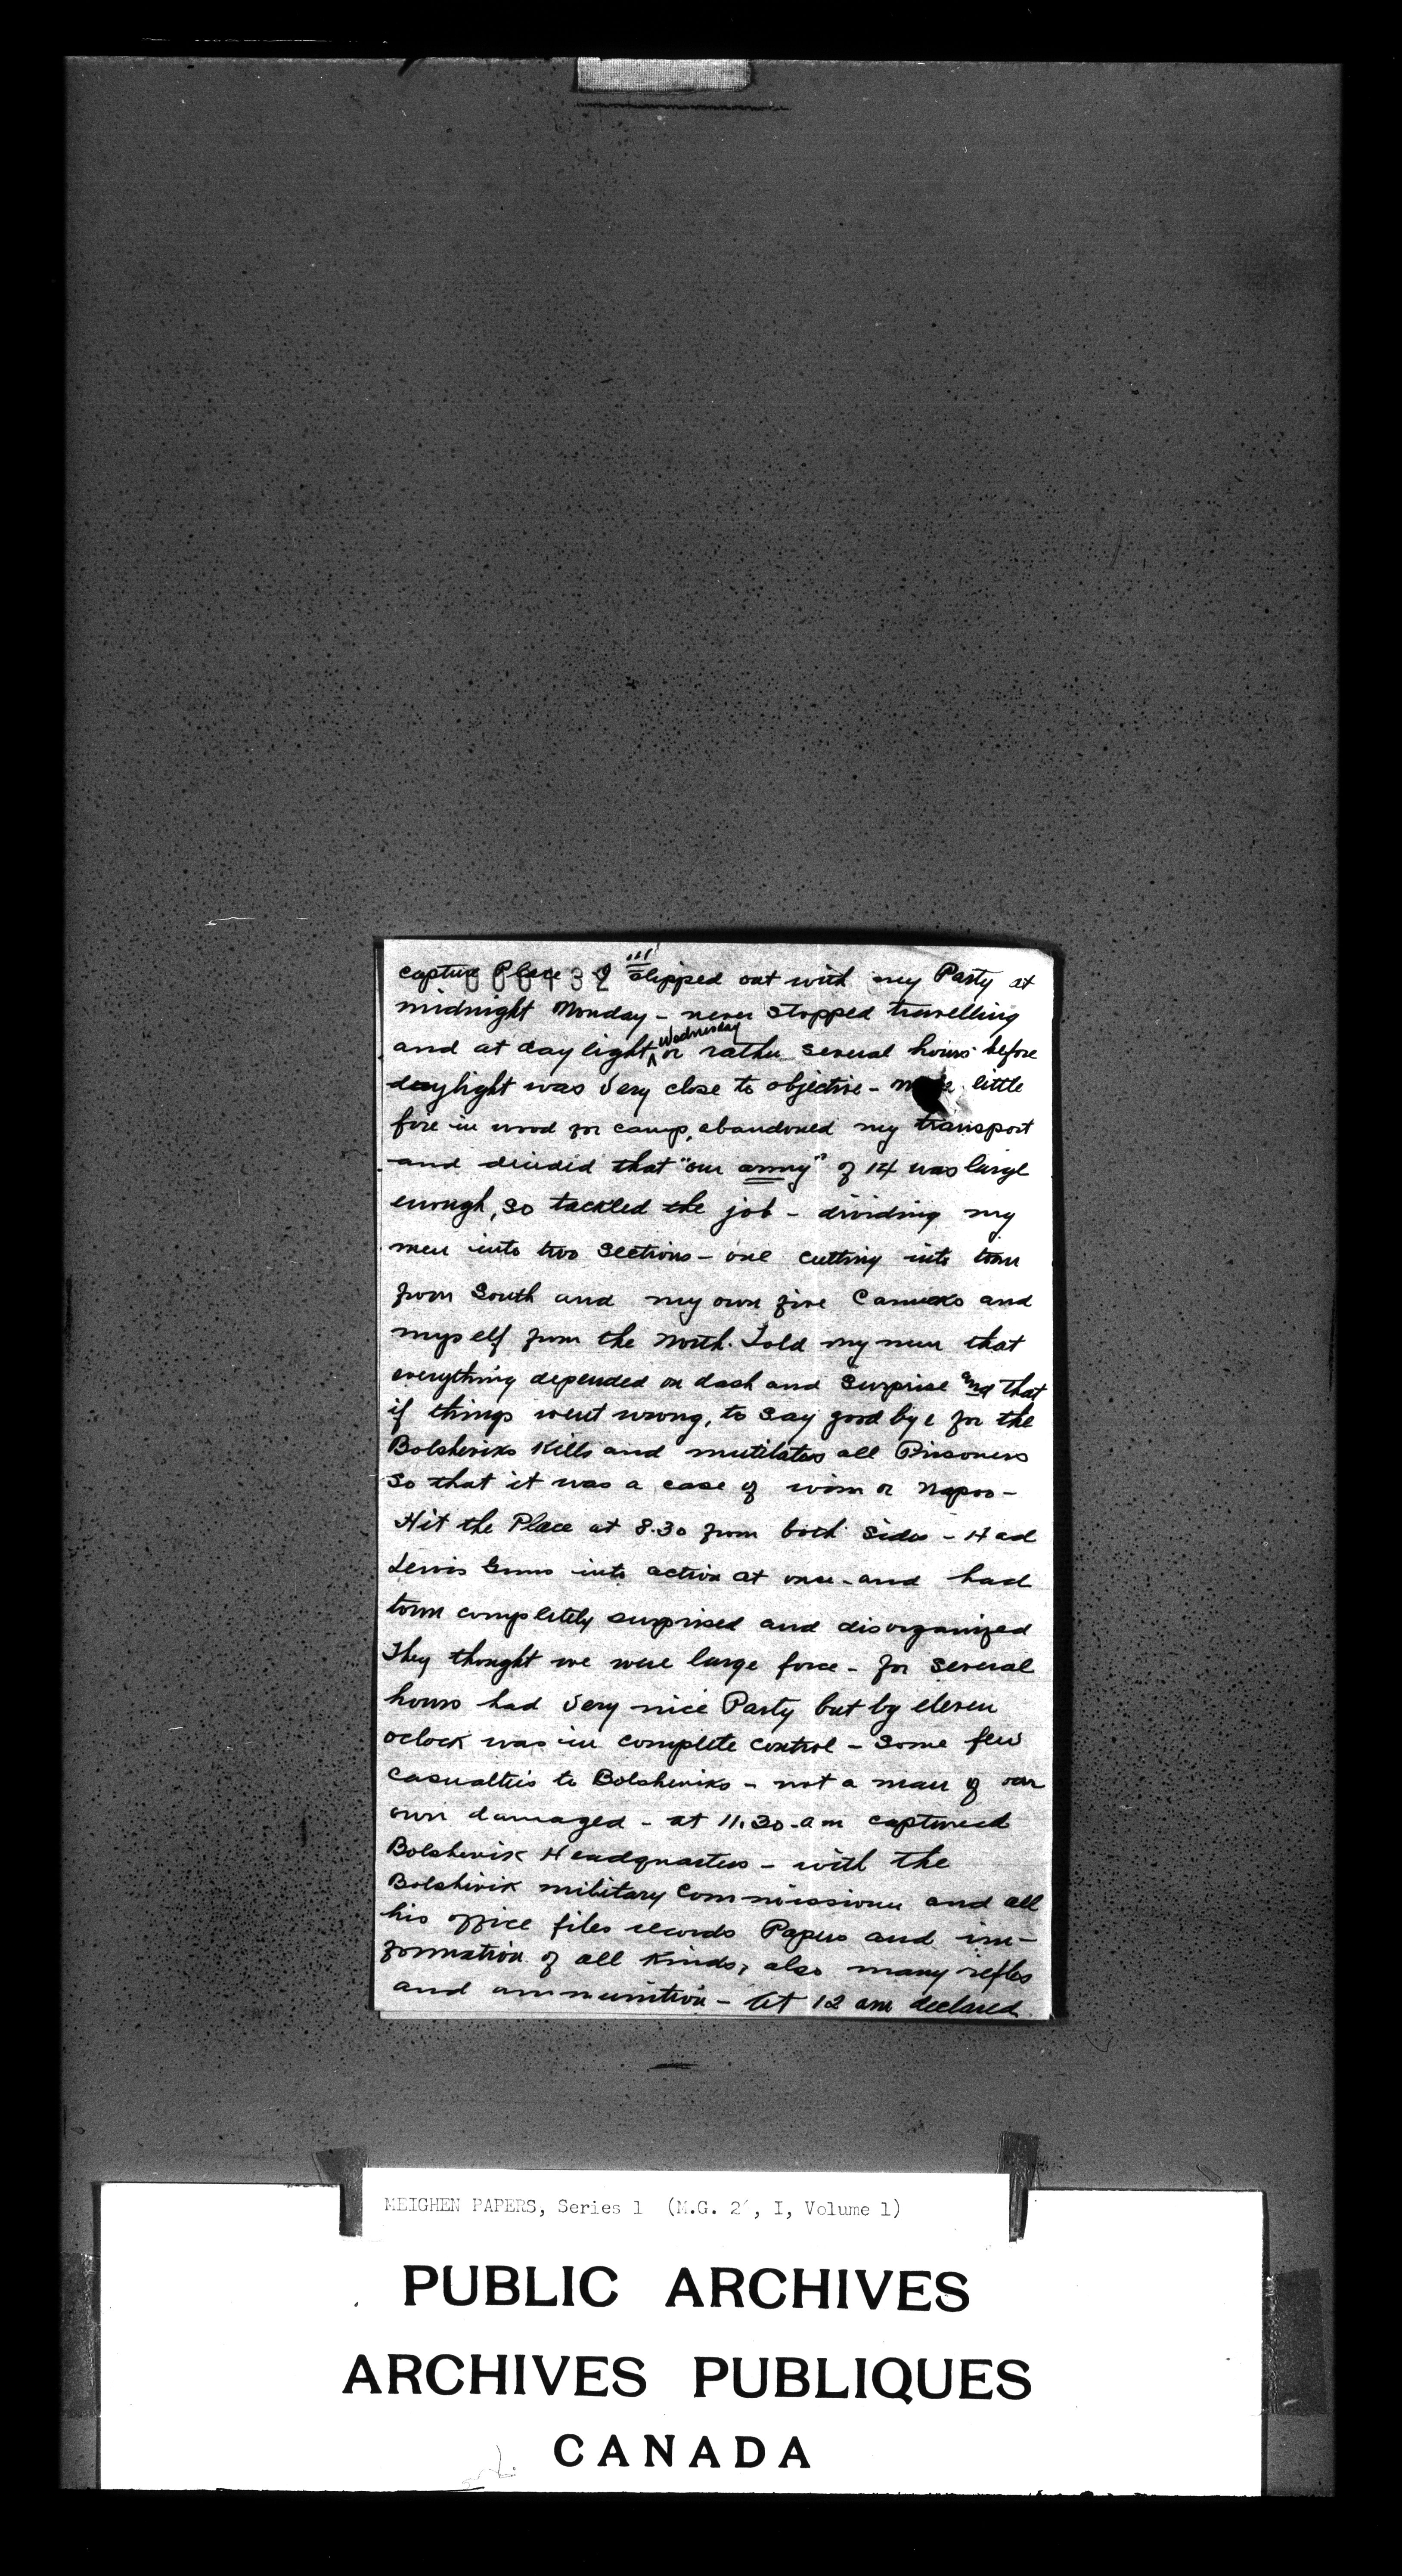 III
000432
capture Place I slipped out with my Party at
midnight Monday - never stopped travelling
and at daylight, Wednesday or rather several hours before
daylight was very close to objective - made little
fire in wood for camp, abandoned my transport
and decided that "our army" of 14 was large
enough, so tackled the job - dividing my
men into two sections - one cutting into town
from South and my own five Canucks and
myself from the North. Told my men that
everything depended on dash and surprise and that
if things went wrong, to say good bye for the
Bolsheviks kills and mutilates all Prisoners
so that it was a case of win or napoo -
Hit the Place at 8.30 from both sides - Had
Lewis Guns into action at once - and had
town completely surprised and disorganized
They thought we were large force - for several
hours had very nice Party but by eleven
oclock was in complete control - some few
casualties to Bolsheviks - not a man of our
own damaged - at 11.30 am captured
Bolshevik Headquarters - with the
Bolshevik military Commissioner and all
his office files records Papers and in-
formation of all kinds, also many rifles
and ammunition - At 12 am declared
MEIGHEN PAPERS, Series 1 (M.G. 2, I, Volume 1)
PUBLIC ARCHIVES
ARCHIVES PUBLIQUES
CANADA